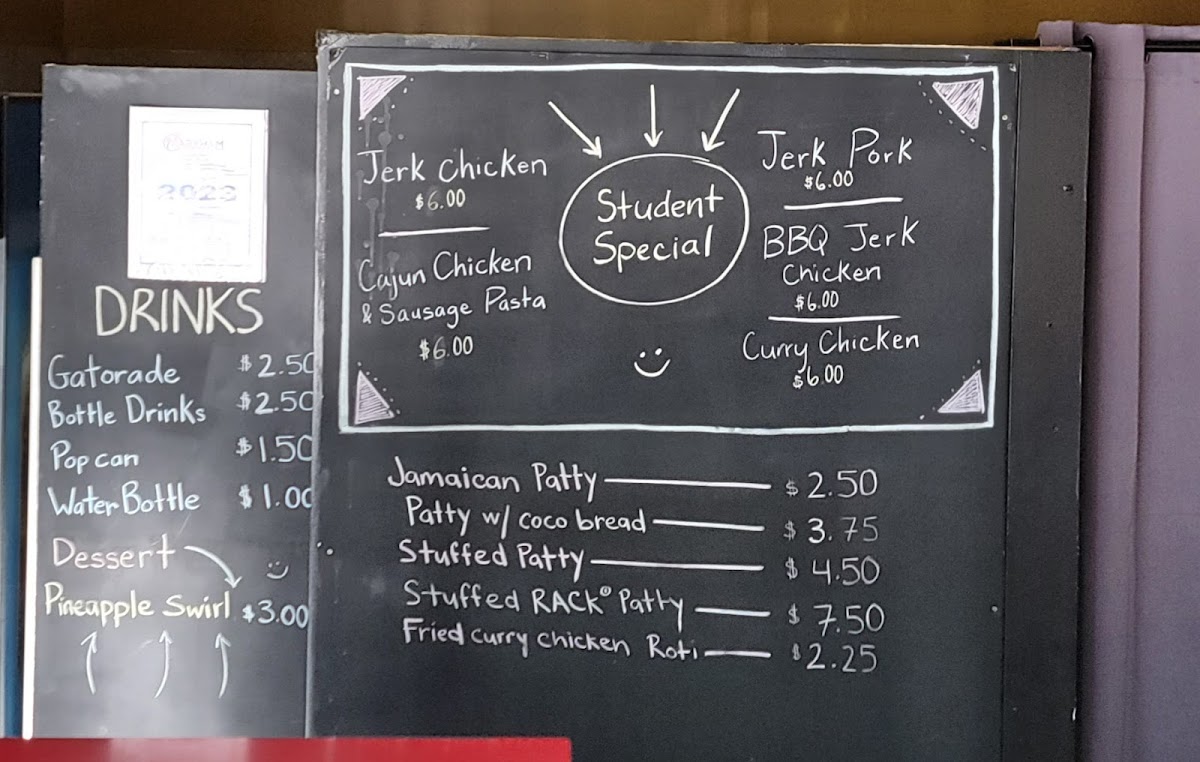 2023
DRINKS
Gatorade $2.50
Bottle Drinks $2.50
Pop can $1.50
Water Bottle $1.00
Dessert
Pineapple Swirl $3.00
Jerk Chicken
$6.00
Cajun Chicken
& Sausage Pasta
$6.00
Student
Special
Jerk Pork
$6.00
BBQ Jerk
Chicken
$6.00
Curry Chicken
$6.00
Jamaican Patty $2.50
Patty w/ coco bread $3.75
Stuffed Patty $4.50
Stuffed RACK® Patty $7.50
Fried curry chicken Roti $2.25